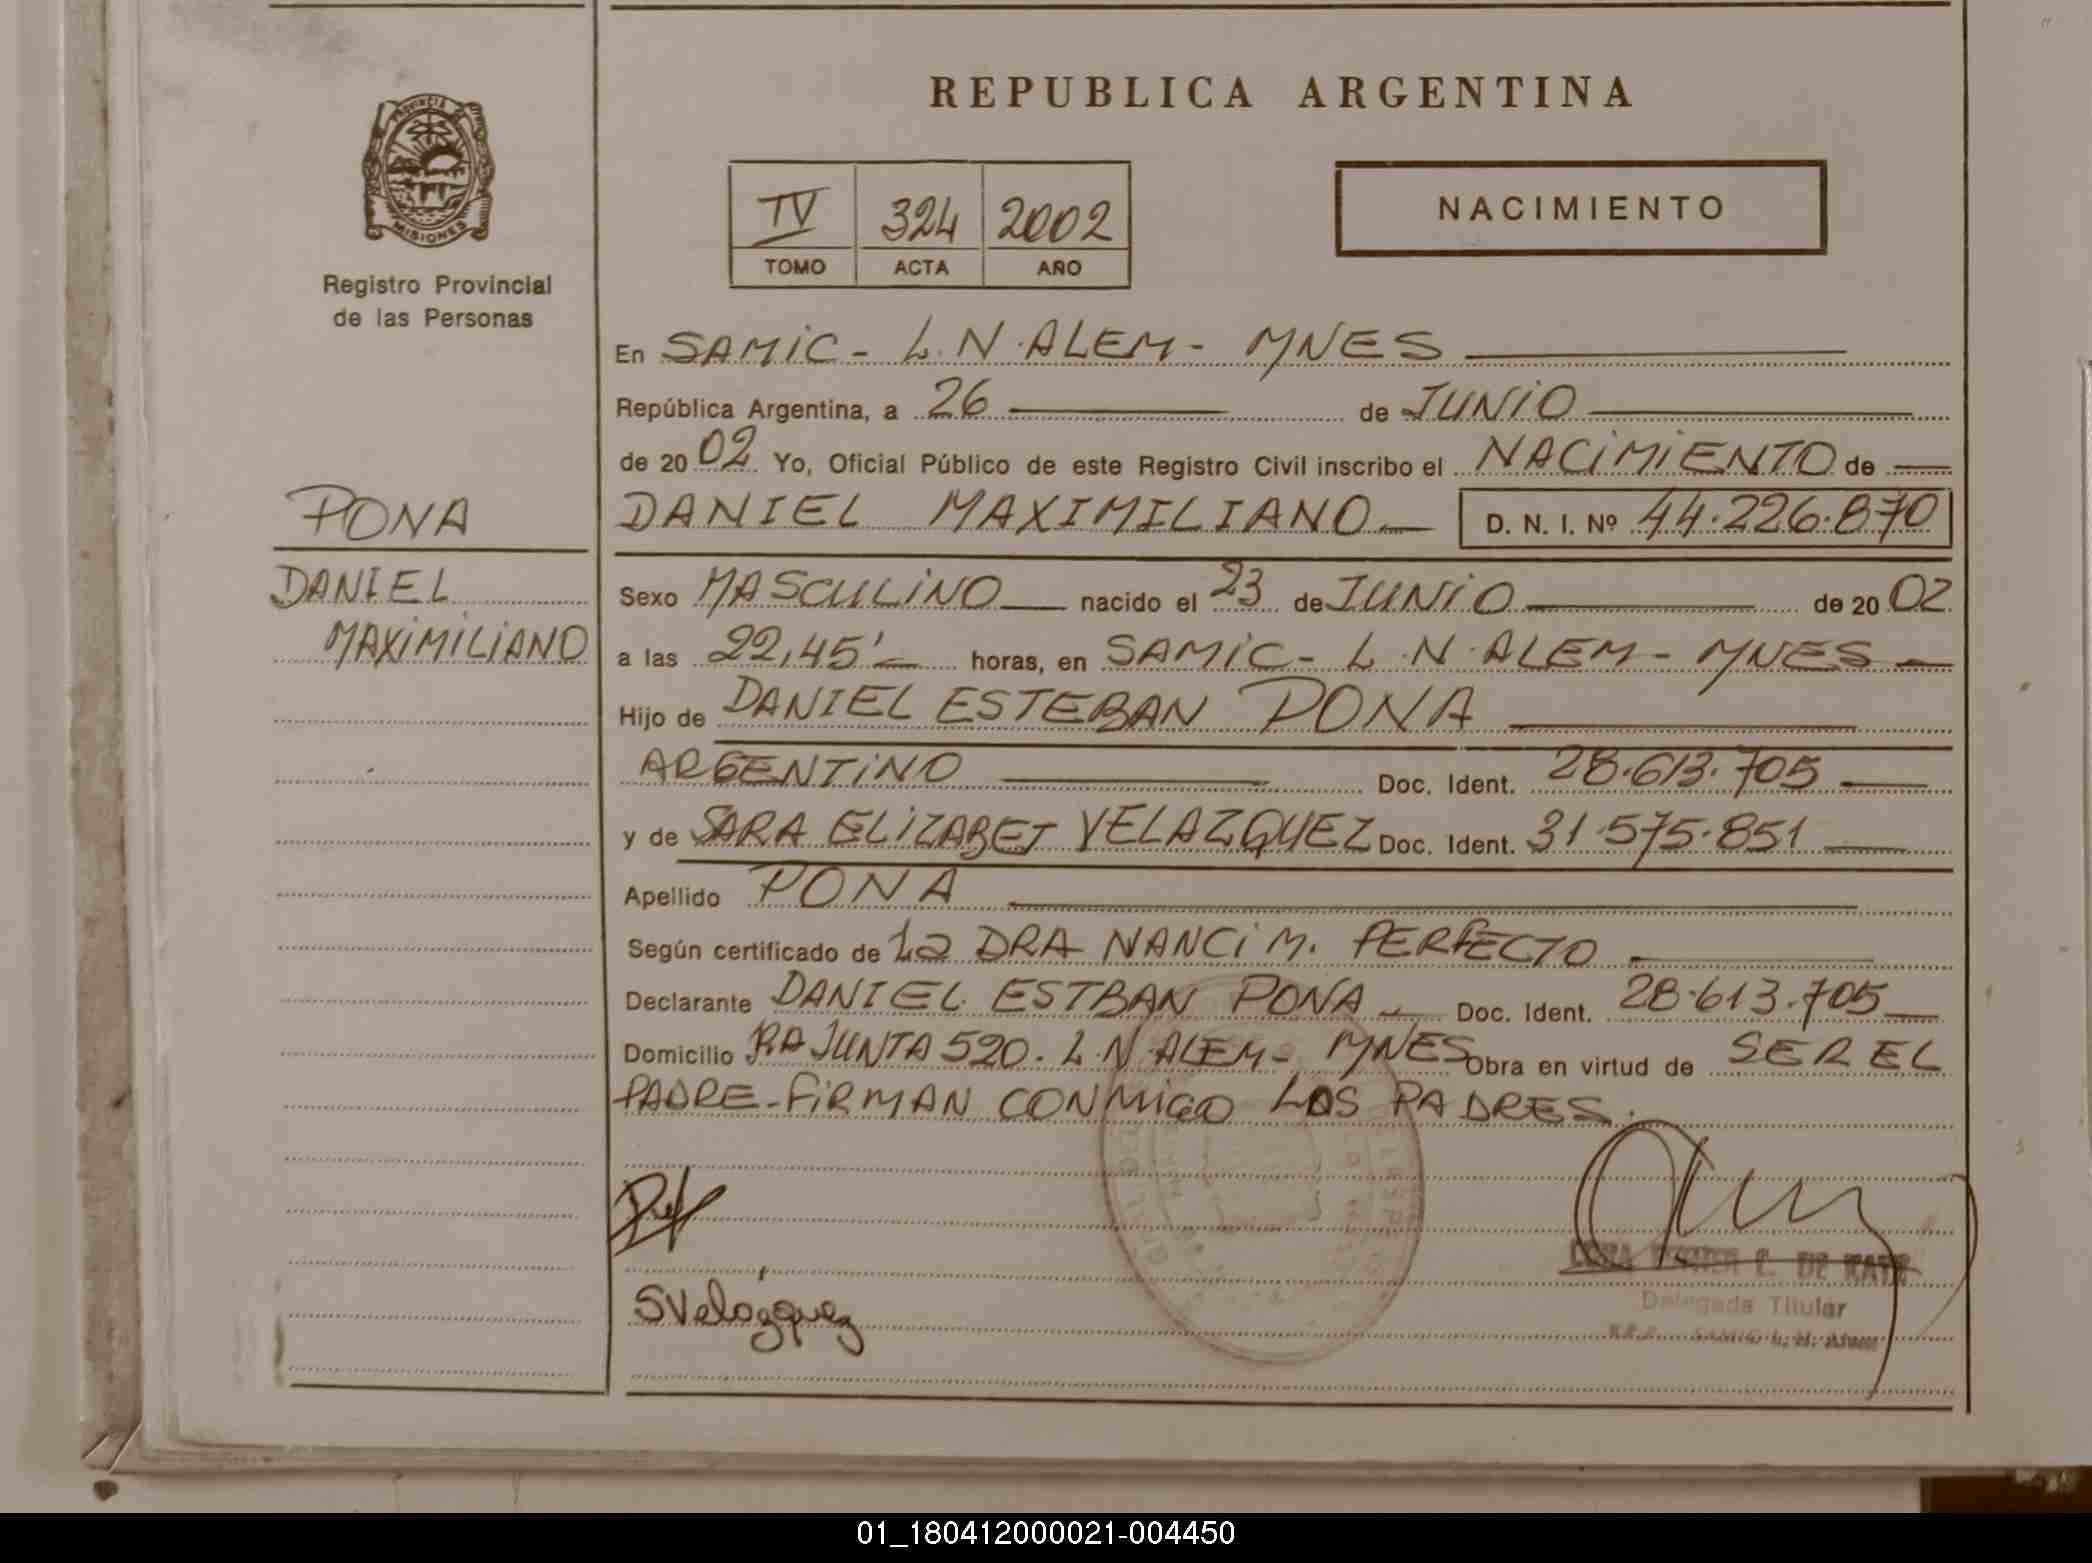 REPUBLICA ARGENTINA
PROVINCIA DE
MISIONES
Registro Provincial
de las Personas
IV 324 2002
TOMO ACTA AÑO
NACIMIENTO
En SAMIC - L.N.ALEM - MNES
República Argentina, a 26 de JUNIO
de 2002 Yo, Oficial Público de este Registro Civil inscribo el NACIMIENTO de
PONA
DANIEL
MAXIMILIANO
DANIEL MAXIMILIANO D. N. I. Nº 44.226.870
Sexo MASCULINO nacido el 23 de JUNIO de 2002
a las 22,45' horas, en SAMIC - L.N.ALEM - MNES
Hijo de DANIEL ESTEBAN PONA
ARGENTINO Doc. Ident. 28.613.705
y de SARA ELIZABET VELAZQUEZ Doc. Ident. 31.575.851
Apellido PONA
Según certificado de La DRA NANCI M. PERFECTO
Declarante DANIEL ESTBAN PONA Doc. Ident. 28.613.705
Domicilio RA JUNTA 520. L.N.ALEM - MNES Obra en virtud de SER EL
PADRE - FIRMAN CONMIGO LOS PADRES.
SVelázquez
C. DE
Delegada Titular
SAMIC L. N. Alem
01_180412000021-004450